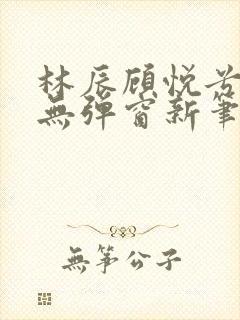 林辰顾悦兮
無彈窗新筆
無筝公子